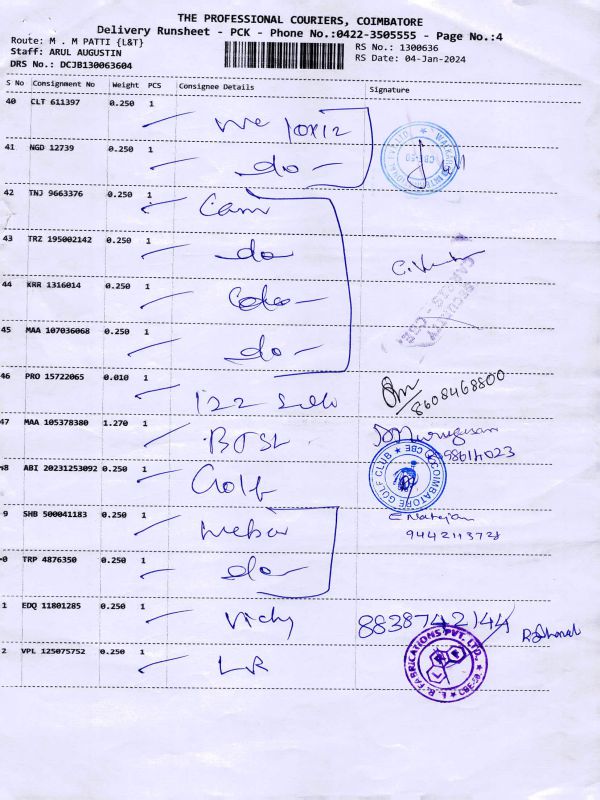 THE PROFESSIONAL COURIERS, COIMBATORE
Delivery Runsheet - PCK - Phone No.:0422-3505555 - Page No.:4
Route: M . M PATTI {L&T}
Staff: ARUL AUGUSTIN
DRS No.: DCJB130063604
RS No.: 1300636
RS Date: 04-Jan-2024
S No Consignment No Weight PCS Consignee Details Signature
40 CLT 611397 0.250 1
41 NGD 12739 0.250 1 do
42 TNJ 9663376 0.250 1 Cam
43 TRZ 195002142 0.250 1 do
44 KRR 1316014 0.250 1
45 MAA 107036068 0.250 1 do
46 PRO 15722065 0.010 1 8608468800
47 MAA 105378380 1.270 1
48 ABI 20231253092 0.250 1 Golf
COIMBATORE GOLF CLUB ★ CBE ★
9 SHB 500041183 0.250 1
9442113721
0 TRP 4876350 0.250 1 do
1 EDQ 11801285 0.250 1 Vicky 8838742144
2 VPL 125075752 0.250 1 LR
L.R. FABRICATIONS PVT. LTD.